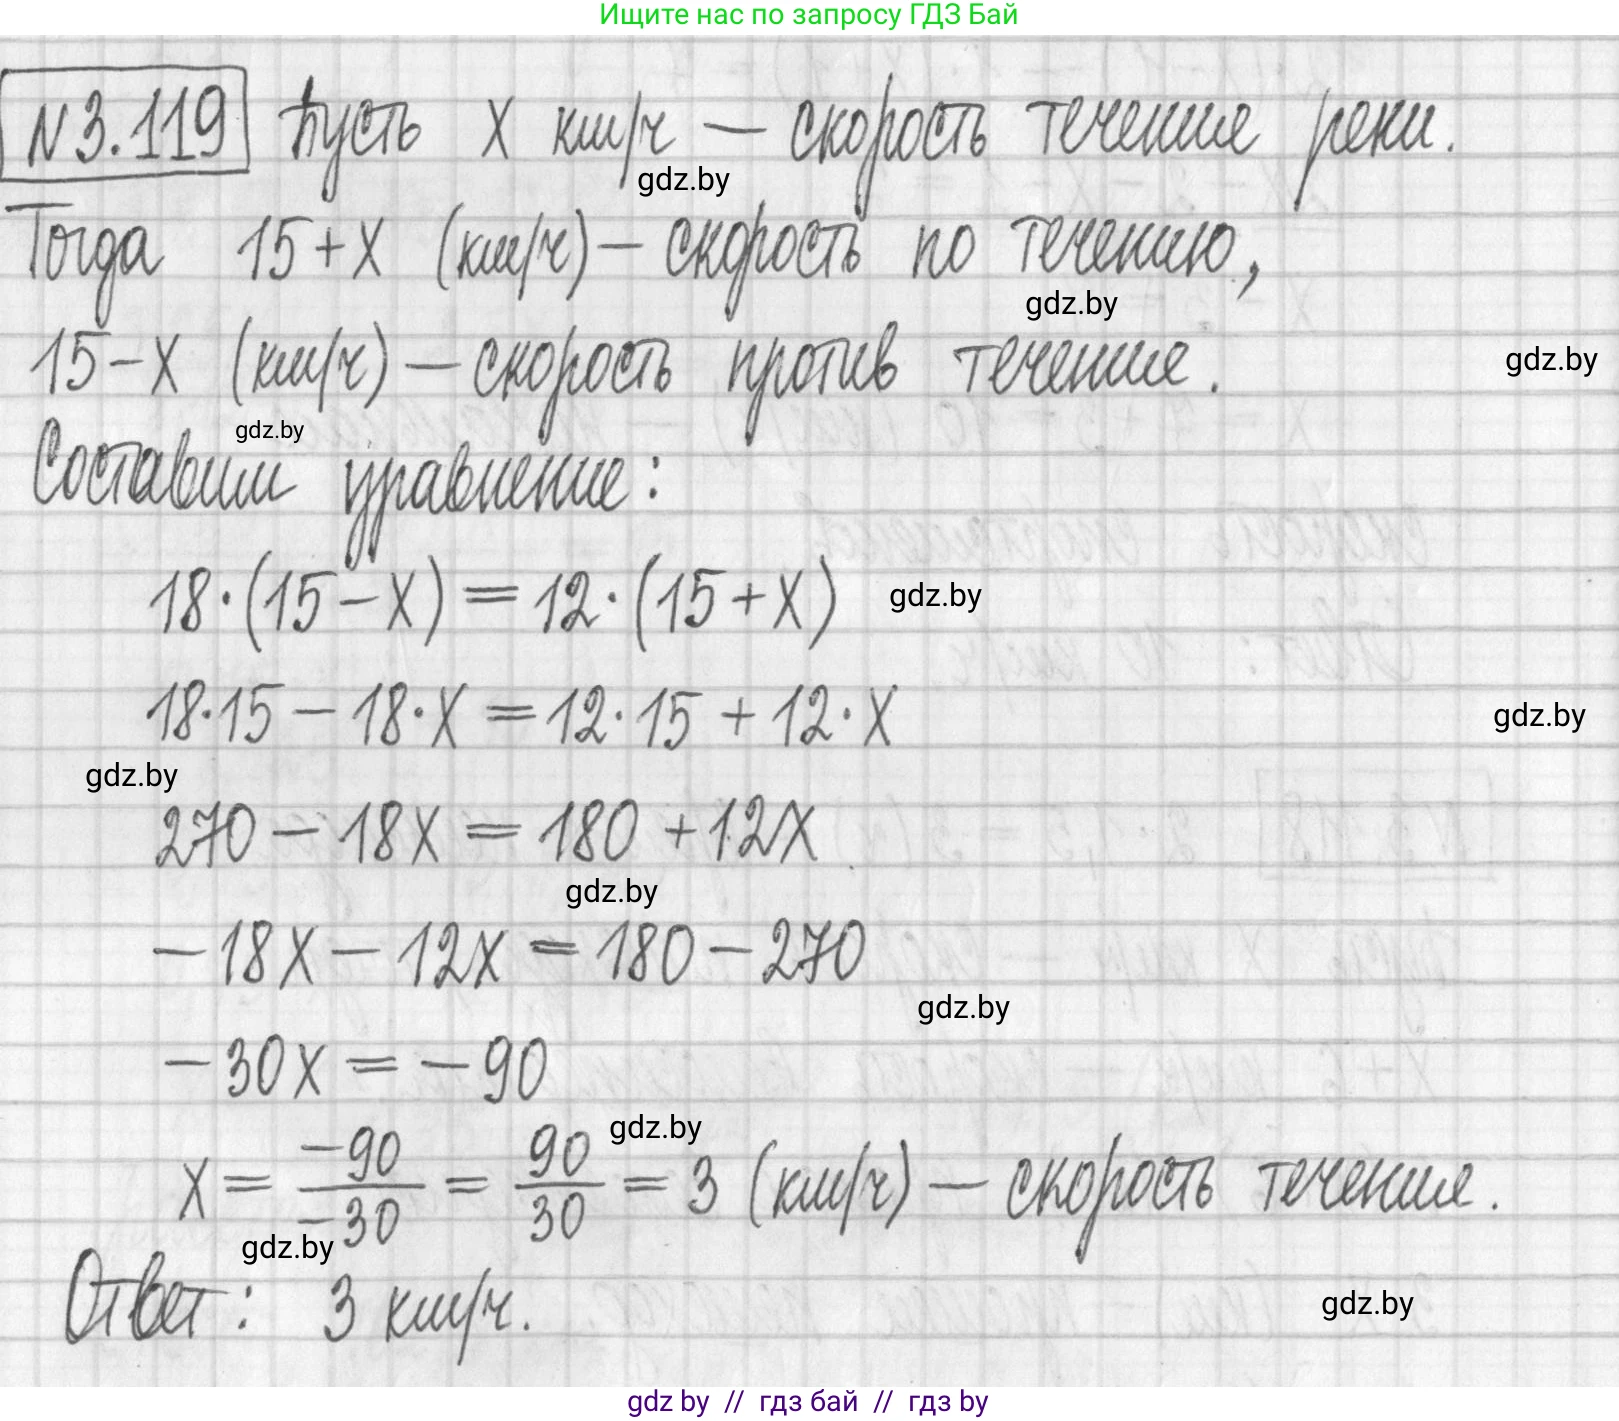 Ищите нас по запросу ГДЗ Бай
N3.119 Пусть x км/ч — скорость течение реки.
gdz.by
Тогда 15+x (км/ч) — скорость по течению,
gdz.by
15-x (км/ч) — скорость против течение.
gdz.by
gdz.by
Составим уравнение:
18·(15-x) = 12·(15+x)
gdz.by
18·15 - 18·x = 12·15 + 12·x
gdz.by
gdz.by
270 - 18x = 180 + 12x
gdz.by
-18x - 12x = 180 - 270
gdz.by
-30x = -90
gdz.by
x = -90/-30 = 90/30 = 3 (км/ч) — скорость течение.
gdz.by
Ответ: 3 км/ч.
gdz.by
gdz by // гдз бай // гдз by